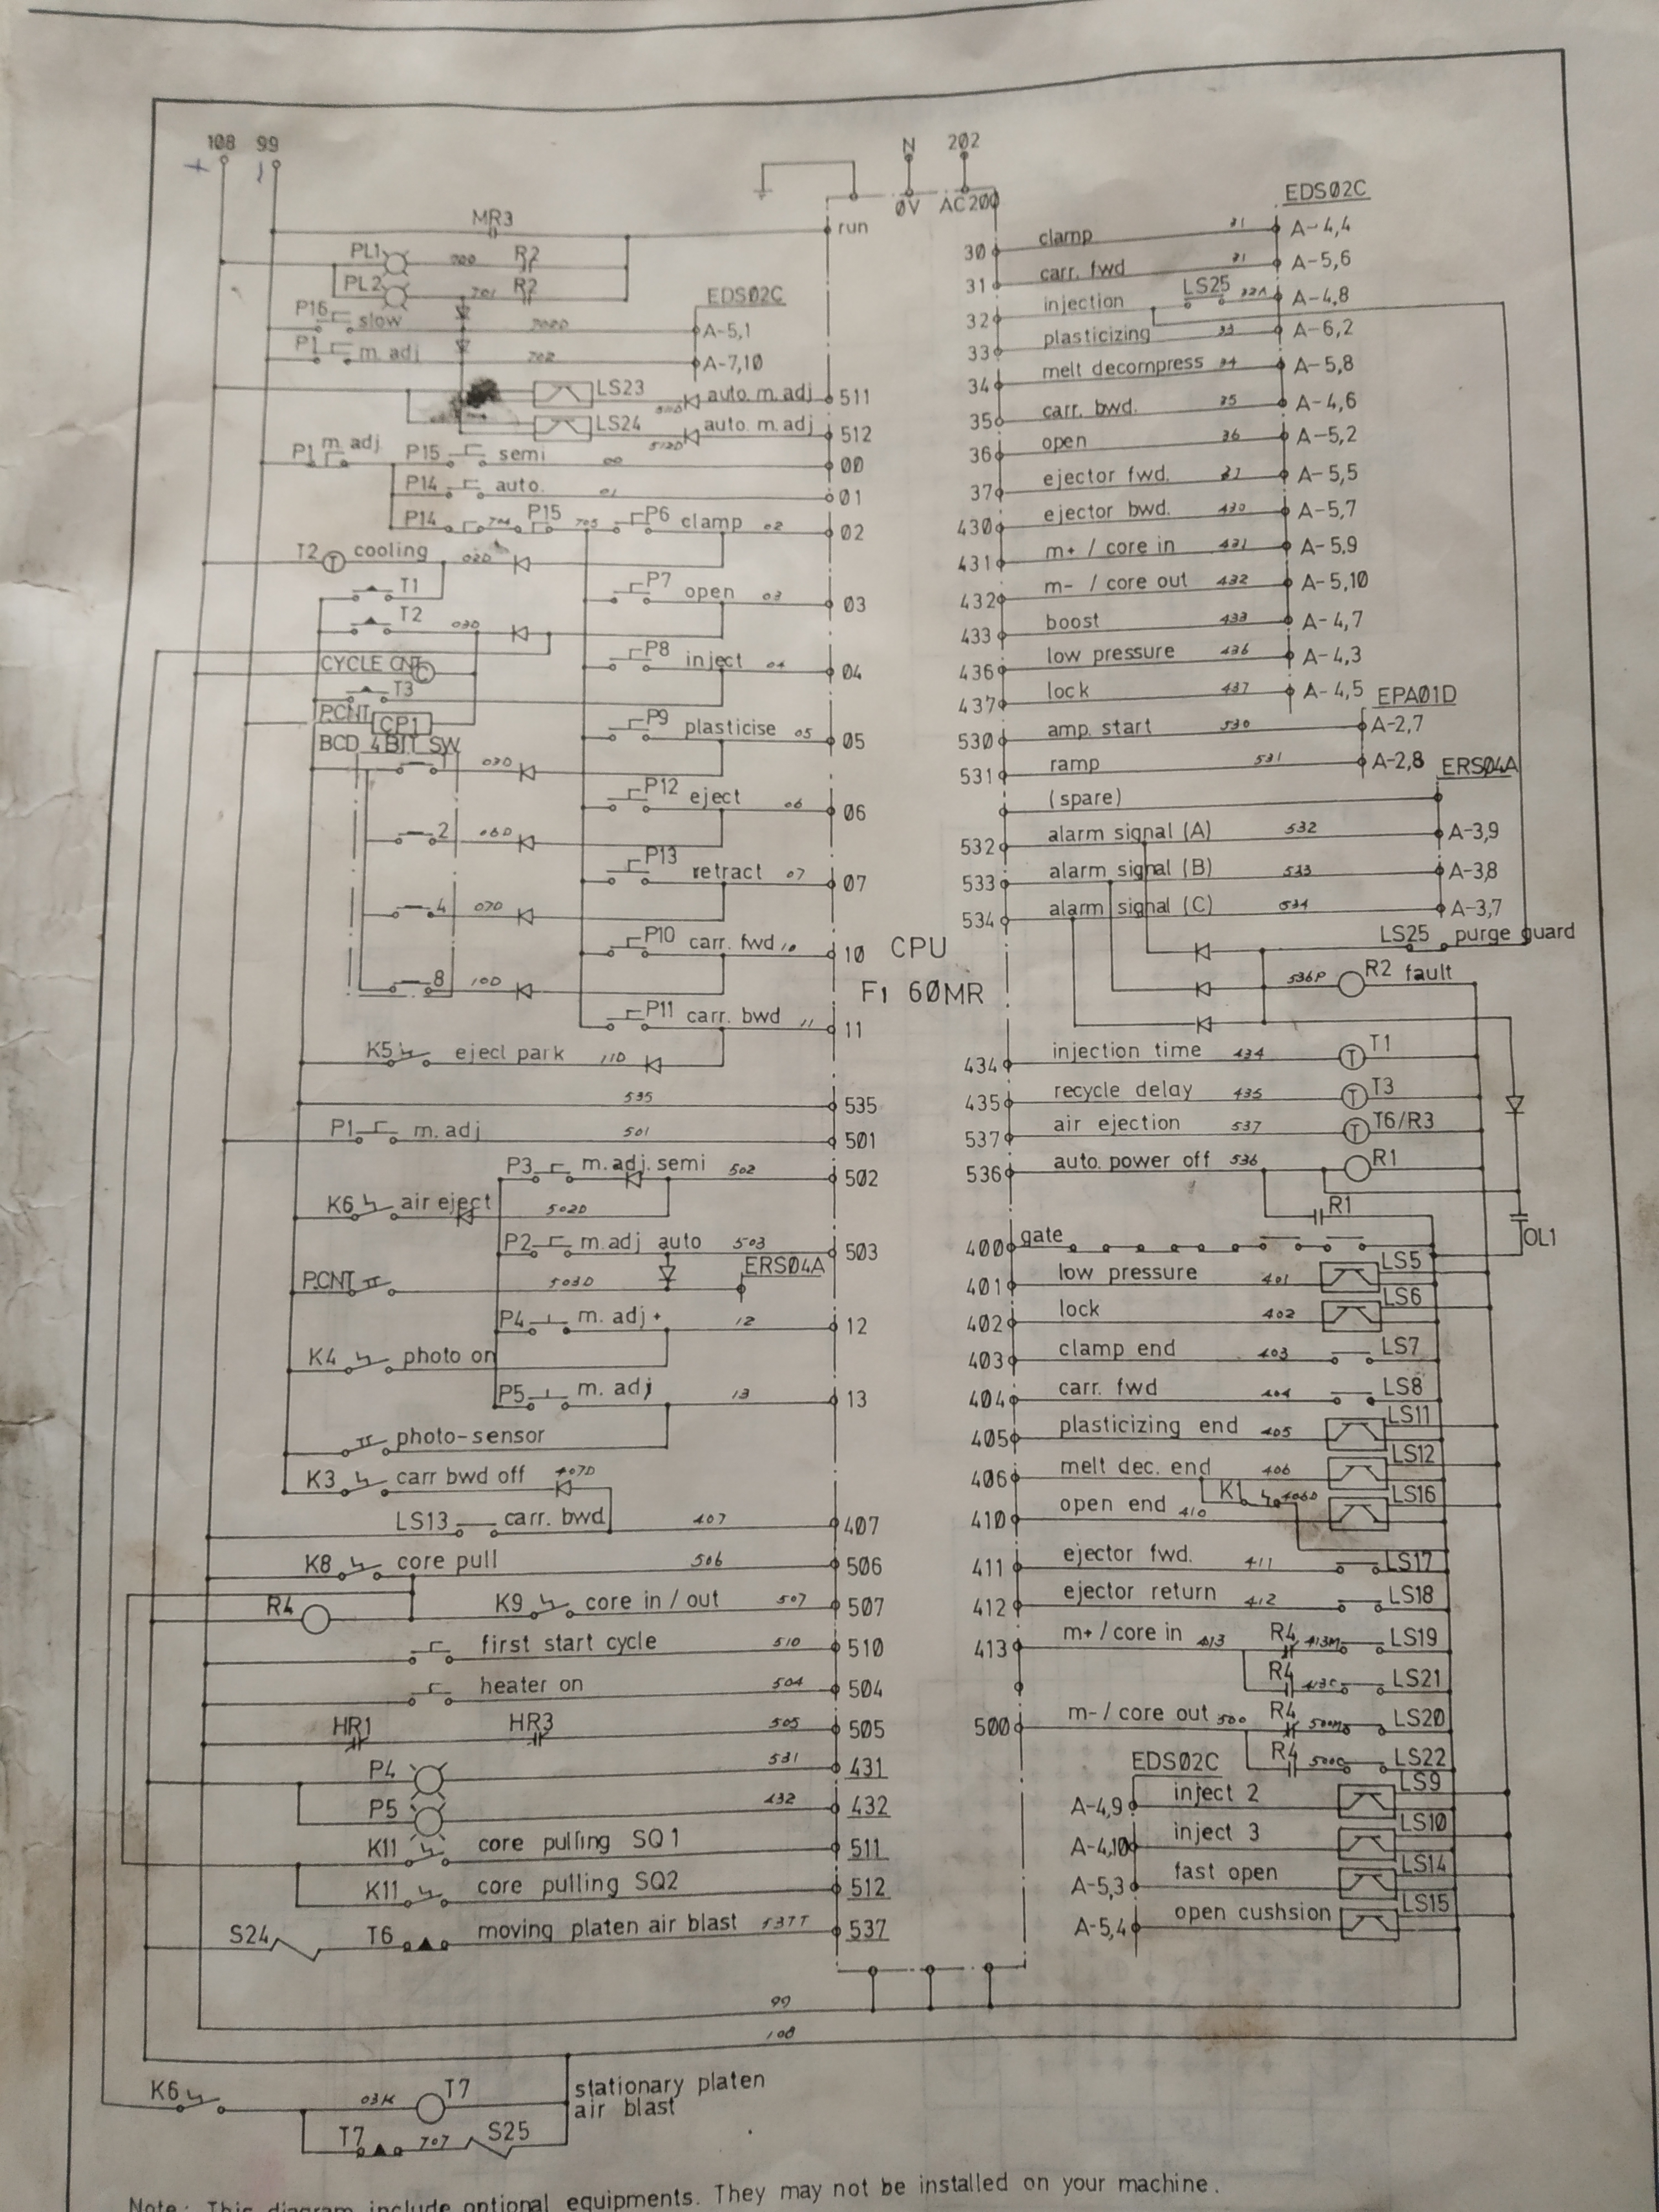 108 99
+ -
N 202
0V AC200
MR3
run
PL1 700 R2
PL2 701 R2
EDS02C
P16 slow 702D A-5,1
P1 m. adj 702 A-7,10
LS23 511D auto. m. adj 511
LS24 512D auto. m. adj 512
P1 m. adj P15 semi 00 00
P14 auto. 01 01
P14 704 P15 705 P6 clamp 02 02
T2 T cooling 02D
T1
P7 open 03 03
T2 03D
P8 inject 04 04
CYCLE CNT C
T3
P.CNT CP1
P9 plasticise 05 05
BCD 4BIT SW
1
P12 eject 06 06
2 06D
P13 retract 07 07
4 07D
P10 carr. fwd 10 10
CPU
F1 60MR
8 10D
P11 carr. bwd 11 11
K5 eject park 11D
535 535
P1 m. adj 501 501
P3 m. adj. semi 502 502
K6 air eject 502D
P2 m. adj auto 503 503
ERS04A
P.CNT 503D
P4 m. adj + 12 12
K4 photo on
P5 m. adj 13 13
photo-sensor
K3 carr bwd off 407D
LS13 carr. bwd 407 407
K8 core pull 506 506
R4 K9 core in / out 507 507
first start cycle 510 510
heater on 504 504
HR1 HR3 505 505
P4 531 431
P5 432 432
K11 core pulling SQ1 511
K11 core pulling SQ2 512
S24 T6 moving platen air blast 537T 537
EDS02C
30 clamp A-4,4
31 carr. fwd 31 A-5,6
32 injection LS25 32A A-4,8
33 plasticizing 33 A-6,2
34 melt decompress 34 A-5,8
35 carr. bwd. 35 A-4,6
36 open 36 A-5,2
37 ejector fwd. 37 A-5,5
430 ejector bwd. 430 A-5,7
431 m+ / core in 431 A-5,9
432 m- / core out 432 A-5,10
433 boost 433 A-4,7
436 low pressure 436 A-4,3
437 lock 437 A-4,5
EPA01D
530 amp. start 530 A-2,7
531 ramp 531 A-2,8
ERS04A
(spare)
532 alarm signal (A) 532 A-3,9
533 alarm signal (B) 533 A-3,8
534 alarm signal (C) 534 A-3,7
LS25 purge guard
536P R2 fault
434 injection time 434 T T1
435 recycle delay 435 T T3
537 air ejection 537 T T6/R3
536 auto. power off 536 R1
R1
OL1
400 gate
401 low pressure 401 LS5
402 lock 402 LS6
403 clamp end 403 LS7
404 carr. fwd 404 LS8
405 plasticizing end 405 LS11
406 melt dec. end 406 LS12
K1 406D
410 open end 410 LS16
411 ejector fwd. 411 LS17
412 ejector return 412 LS18
413 m+ / core in 413 R4 413M LS19
R4 413C LS21
500 m- / core out 500 R4 500M LS20
R4 500C LS22
EDS02C
A-4,9 inject 2 LS9
A-4,10 inject 3 LS10
A-5,3 fast open LS14
A-5,4 open cushsion LS15
99
108
K6 03K T7 stationary platen
air blast
T7 707 S25
Note: This diagram include optional equipments. They may not be installed on your machine.